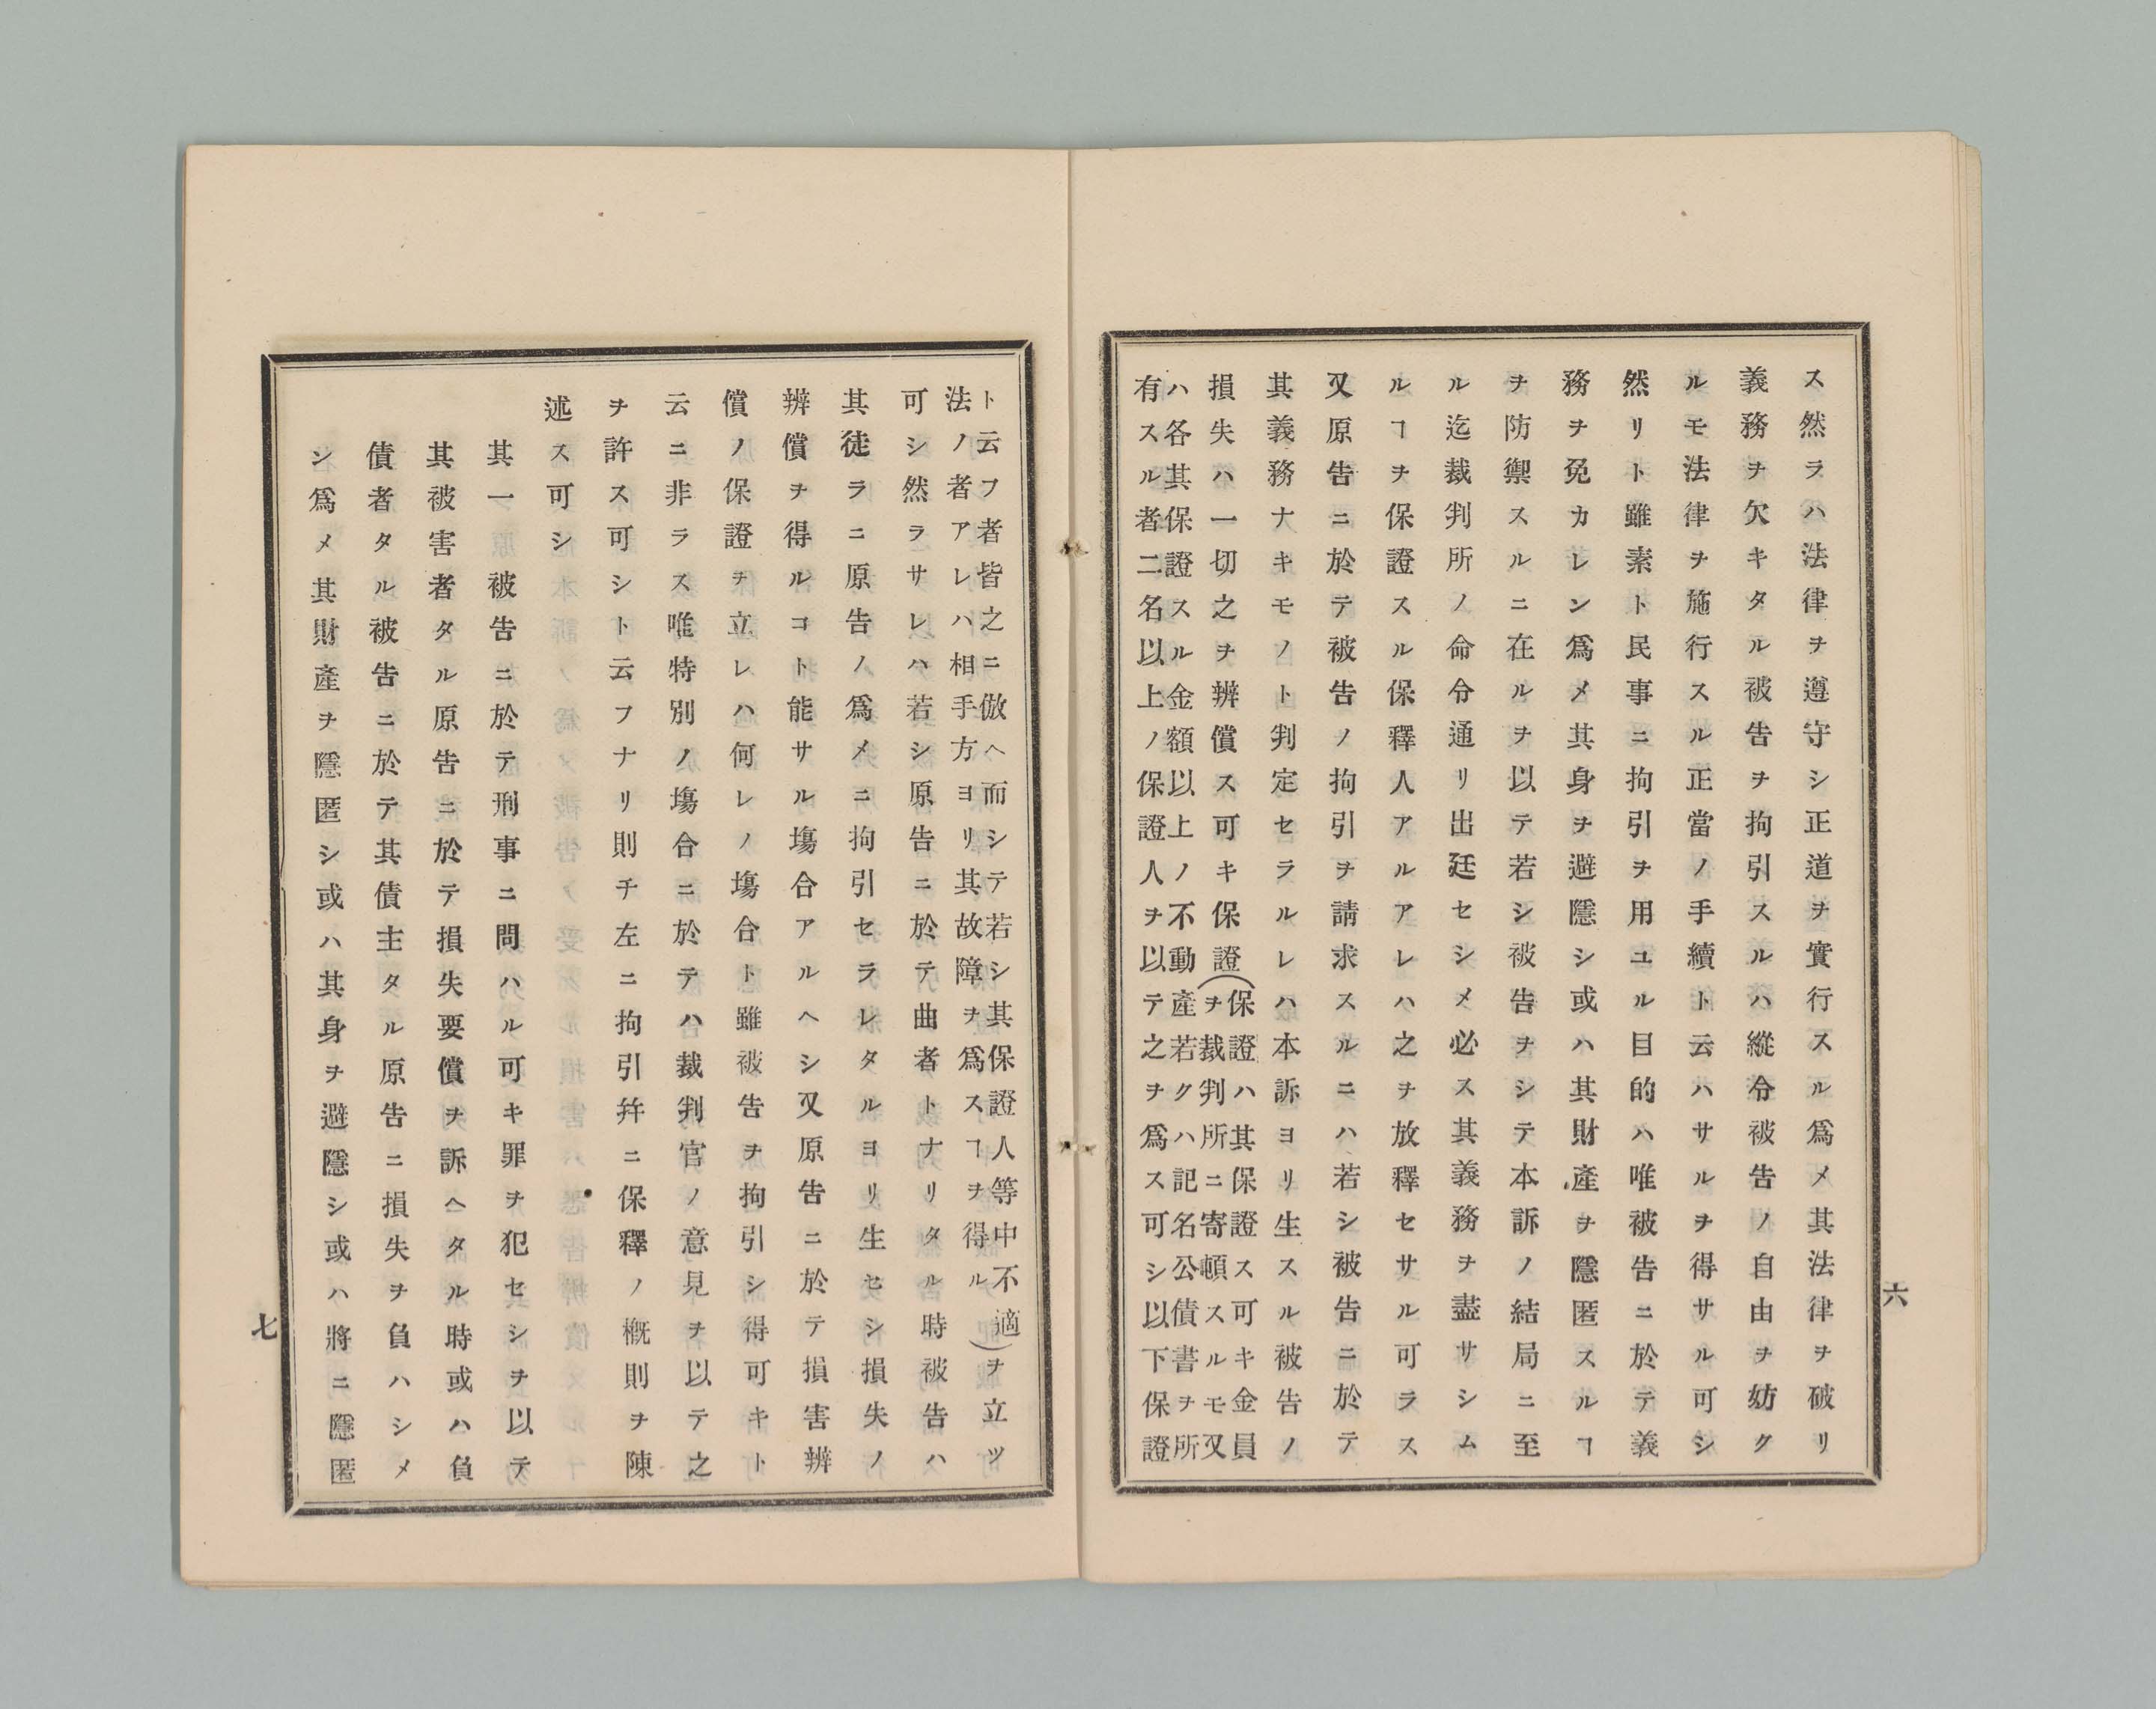 ス然ラハ法律ヲ遵守シ正道ヲ實行スル爲メ其法律ヲ破リ
義務ヲ欠キタル被告ヲ拘引スルハ縱令被告ノ自由ヲ妨ク
ルモ法律ヲ施行スル正當ノ手續ト云ハサルヲ得サル可シ
然リト雖素ト民事ニ拘引ヲ用ユル目的ハ唯被告ニ於テ義
務ヲ免カレン爲メ其身ヲ避隱シ或ハ其財產ヲ隱匿スルヿ
ヲ防禦スルニ在ルヲ以テ若シ被告ヲシテ本訴ノ結局ニ至
ル迄裁判所ノ命令通リ出廷セシメ必ス其義務ヲ盡サシム
ルヿヲ保證スル保釋人アルアレハ之ヲ放釋セサル可ラス
又原告ニ於テ被告ノ拘引ヲ請求スルニハ若シ被告ニ於テ
其義務ナキモノト判定セラルレハ本訴ヨリ生スル被告ノ
損失ハ一切之ヲ辨償ス可キ保證(保證ハ其保證ス可キ金員
ヲ裁判所ニ寄頓スルモ又
ハ各其保證スル金額以上ノ不動產若クハ記名公債書ヲ所
有スル者二名以上ノ保證人ヲ以テ之ヲ爲ス可シ以下保證
六
ト云フ者皆之ニ倣ヘ而シテ若シ其保證人等中不適
法ノ者アレハ相手方ヨリ其故障ヲ爲スヿヲ得ル)ヲ立ツ
可シ然ラサレハ若シ原告ニ於テ曲者トナリタル時被告ハ
其徒ラニ原告ノ爲メニ拘引セラレタルヨリ生セシ損失ノ
辨償ヲ得ルコト能サル塲合アルヘシ又原告ニ於テ損害辨
償ノ保證ヲ立レハ何レノ塲合ト雖被告ヲ拘引シ得可キト
云ニ非ラス唯特別ノ塲合ニ於テハ裁判官ノ意見ヲ以テ之
ヲ許ス可シト云フナリ則チ左ニ拘引幷ニ保釋ノ槪則ヲ陳
述ス可シ
其一被告ニ於テ刑事ニ問ハル可キ罪ヲ犯セシヲ以テ
其被害者タル原告ニ於テ損失要償ヲ訴ヘタル時或ハ負
債者タル被告ニ於テ其債主タル原告ニ損失ヲ負ハシメ
シ爲メ其財產ヲ隱匿シ或ハ其身ヲ避隱シ或ハ將ニ隱匿
七